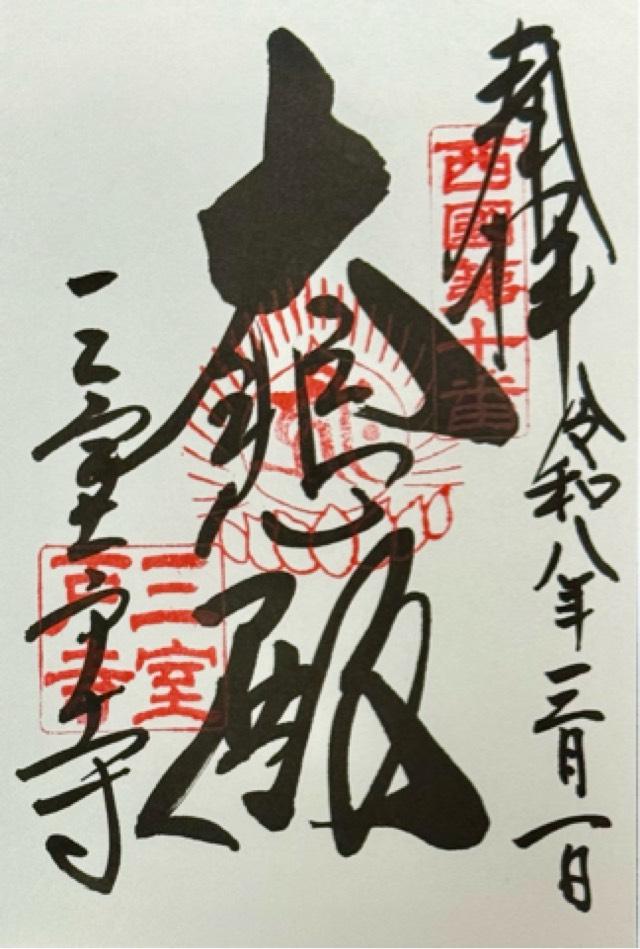 奉拝 令和八年三月一日
西國第十番
大悲殿
三室戸寺
三室
戸寺